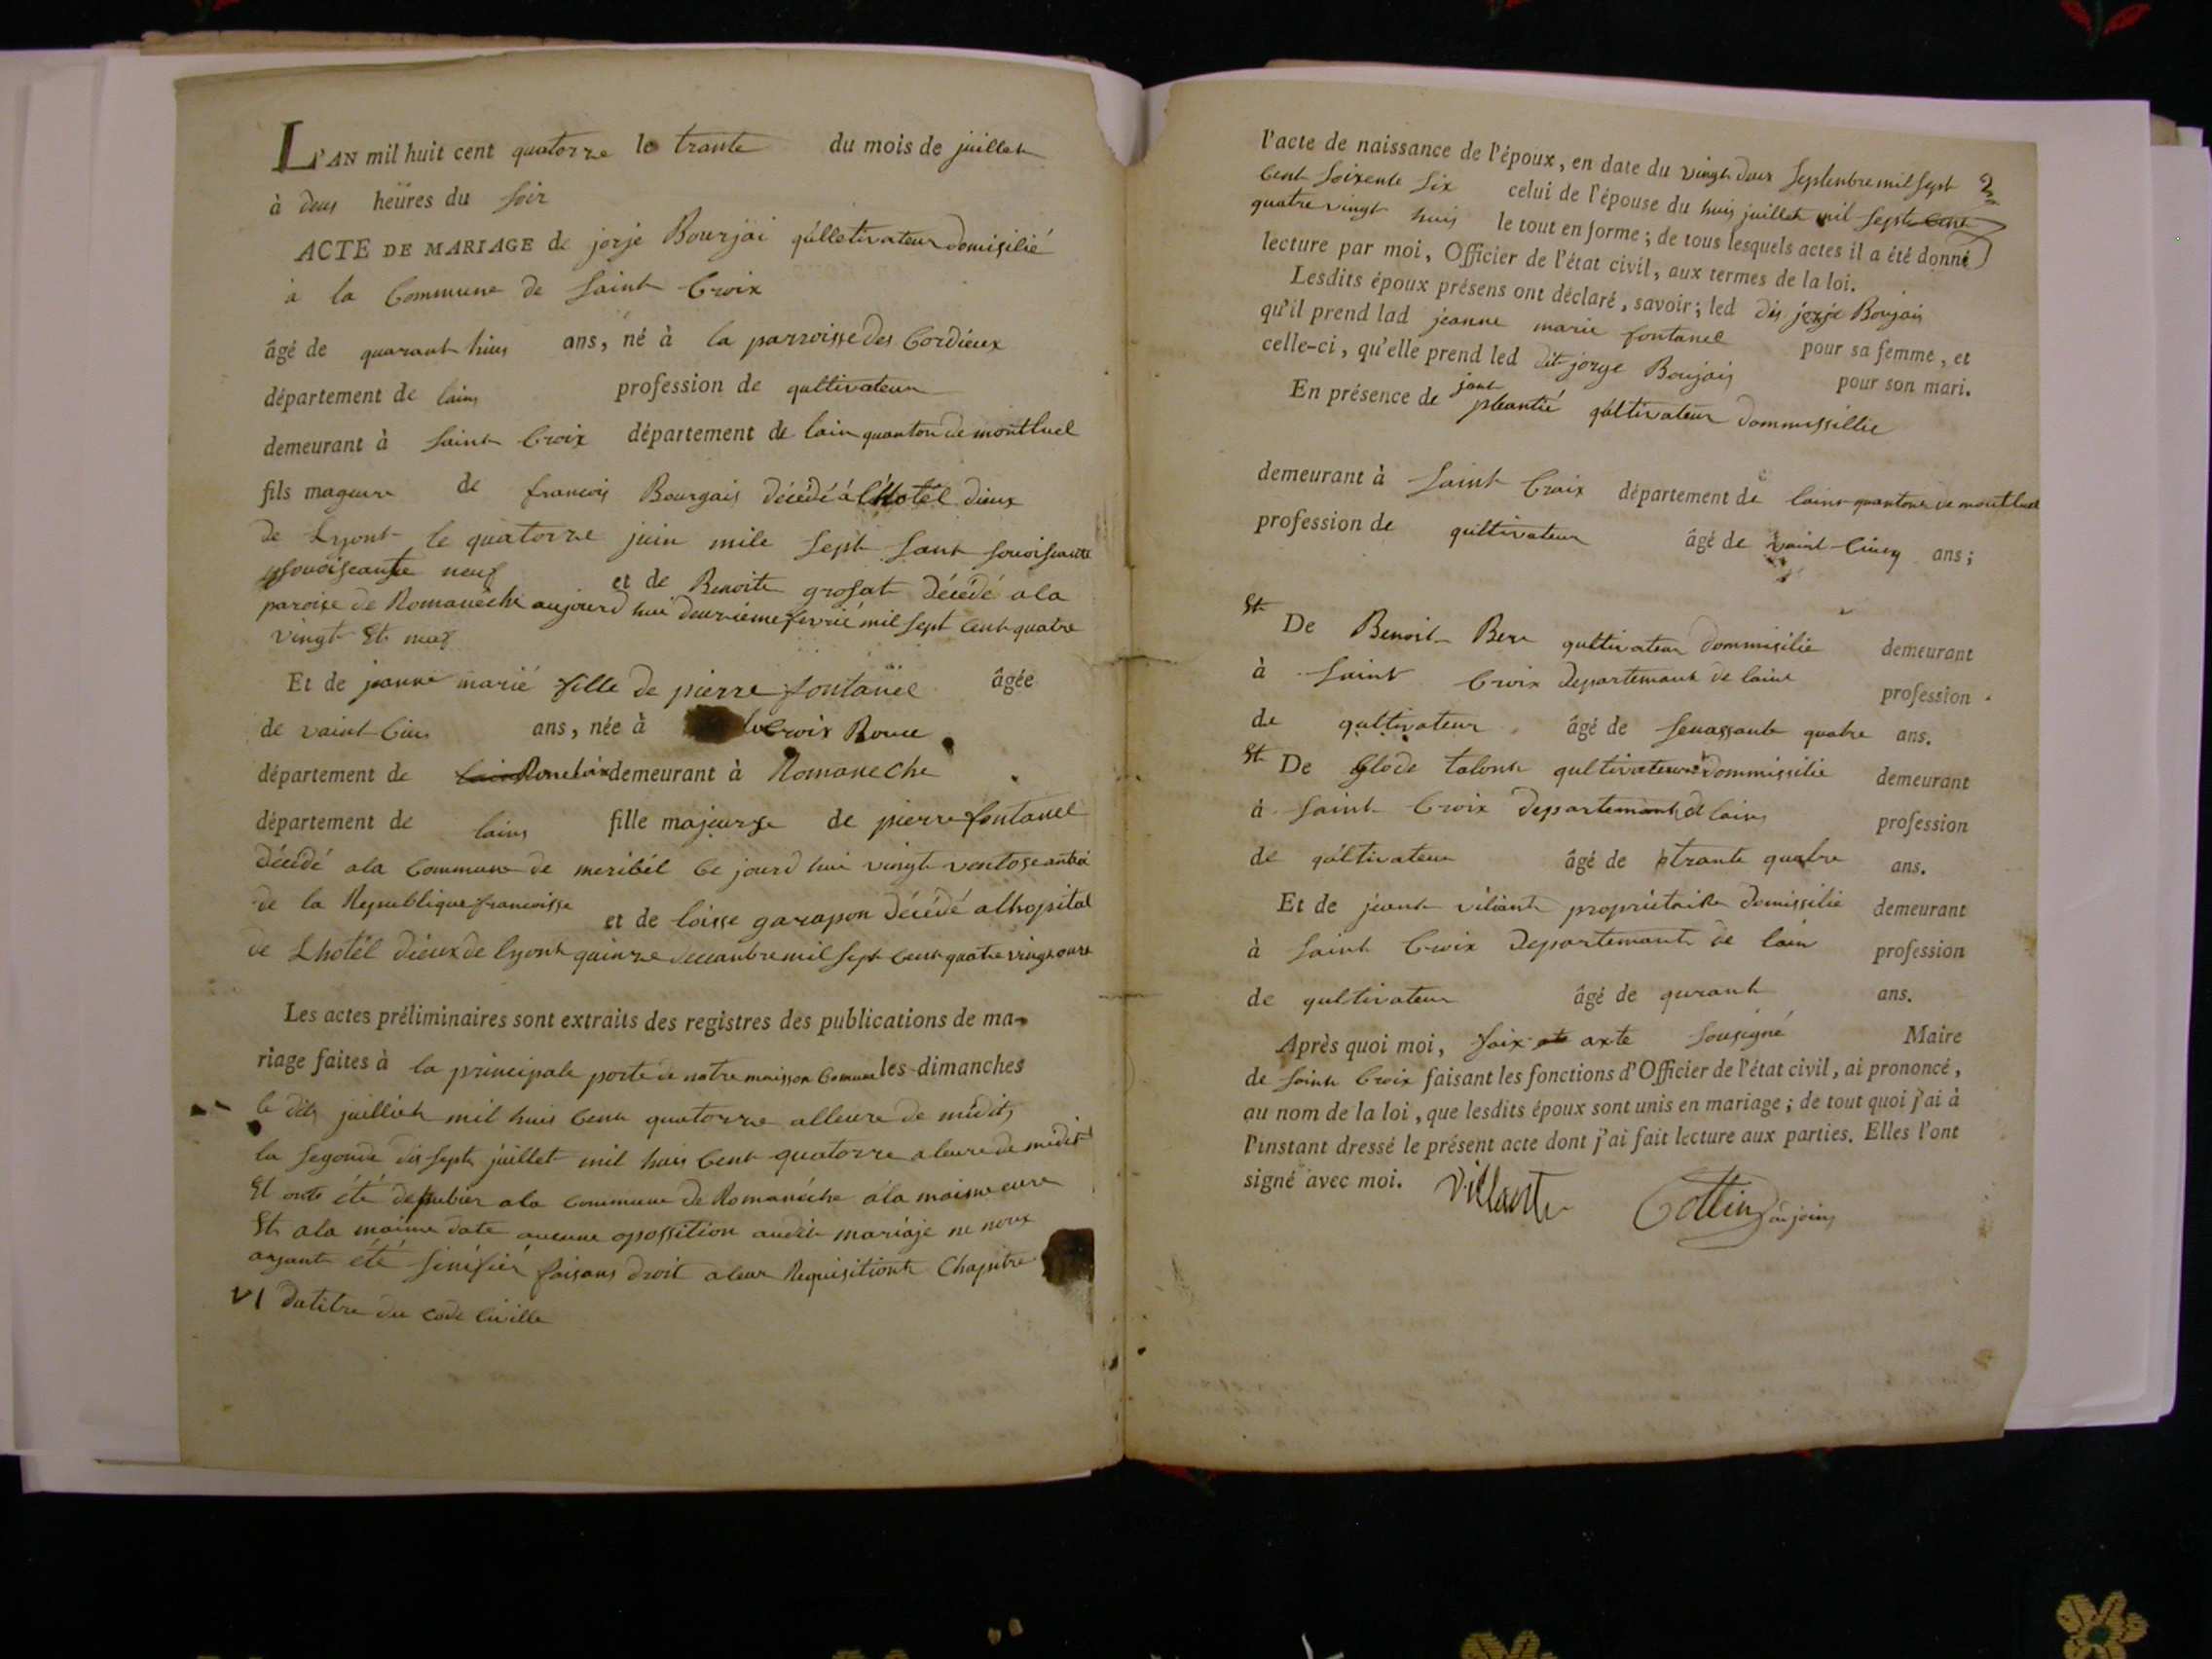 L'AN mil huit cent quatorze le trante du mois de juillet
à deus heüres du soir
ACTE DE MARIAGE de jorje Bourjai qülletivateur domisilié
à la Commune de saint Croix
âgé de quarant huis ans, né à la parroisse des Cordieux
département de lains profession de qultivateur
demeurant à saint Croix département de lain quanton de montluel
fils mageure de francois Bourgais décédé à l'Hotel dieux
de Lyont le quatorze juin mile sept sant sovoiscante
sovoiscante neuf et de Benoite grosat décédé a la
paroise de Romanêche aujourd hui deuxieme fevrié mil sept cent quatre
vingt Et neuf
Et de jeanne marié fille de pierre fontanel âgée
de vaint Cins ans, née à la Croix Rouce
département de demeurant à Romaneche
département de lains fille majeurre de pierre fontanel
décédé ala Commune de meribél Ce jourd hui vingt ventose
de la Republique francoisse et de loisse garapon décédé alhopital
de Lhotél dieux de lyont quinze decanbre mil sept Cent quatre vingt onze
Les actes préliminaires sont extraits des registres des publications de ma-
riage faites à la principale porte de notre maisson Comune les dimanches
le dits juilliet mil huis Cent quatorze alleure de midits
la segonde dis sept juillet mil huis Cent quatorze a leure de midit
Et onte été depubier ala Commune de Romanéche à la maime eure
Et ala maime date aucune opossition audit mariaje ne nous
ayant été sinifiér faisans droit a leur Requisitiont Chapitre
VI du titre du code Civille
l'acte de naissance de l'époux, en date du vingt deux septenbre mil sept
Cent soixente six celui de l'épouse du huis juillet mil sept Cent
quatre vingt huis le tout en forme; de tous lesquels actes il a été donné
lecture par moi, Officier de l'état civil, aux termes de la loi.
Lesdits époux présens ont déclaré, savoir; led dis jorje Boujais
qu'il prend lad jeanne marie fontanel pour sa femme, et
celle-ci, qu'elle prend led dit jorge Boujais pour son mari.
En présence de qültivateur dommissillie
demeurant à saint Croix département de lains quantons de montluel
profession de qultivateur âgé de vaint Cincq ans;
Et De Benoit Bere qultivateur dommisilié demeurant
à saint Croix departemant de laint profession
de qultivateur âgé de souassante quatre ans.
Et De Glode talont qultivateur dommissilie demeurant
à saint Croix departemant de lains profession
de qültivateur âgé de trante quatre ans.
Et de jeant viliant propriétaire domissilie demeurant
à saint Croix departemant de lain profession
de qultivateur âgé de qurant ans.
Après quoi moi, faix axte sousigné Maire
de saint Croix faisant les fonctions d'Officier de l'état civil, ai prononcé,
au nom de la loi, que lesdits époux sont unis en mariage; de tout quoi j'ai à
l'instant dressé le présent acte dont j'ai fait lecture aux parties. Elles l'ont
signé avec moi. Villant Cottin